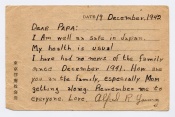 DATE 19 December, 1942
DEAR PAPA:
I Am well as safe in Japan.
My health is usual
I have had no news of the family
since December 1941. How are
you as the family, especially Mom
getting along. Remember me to
everyone. Love, Alfred R. Young